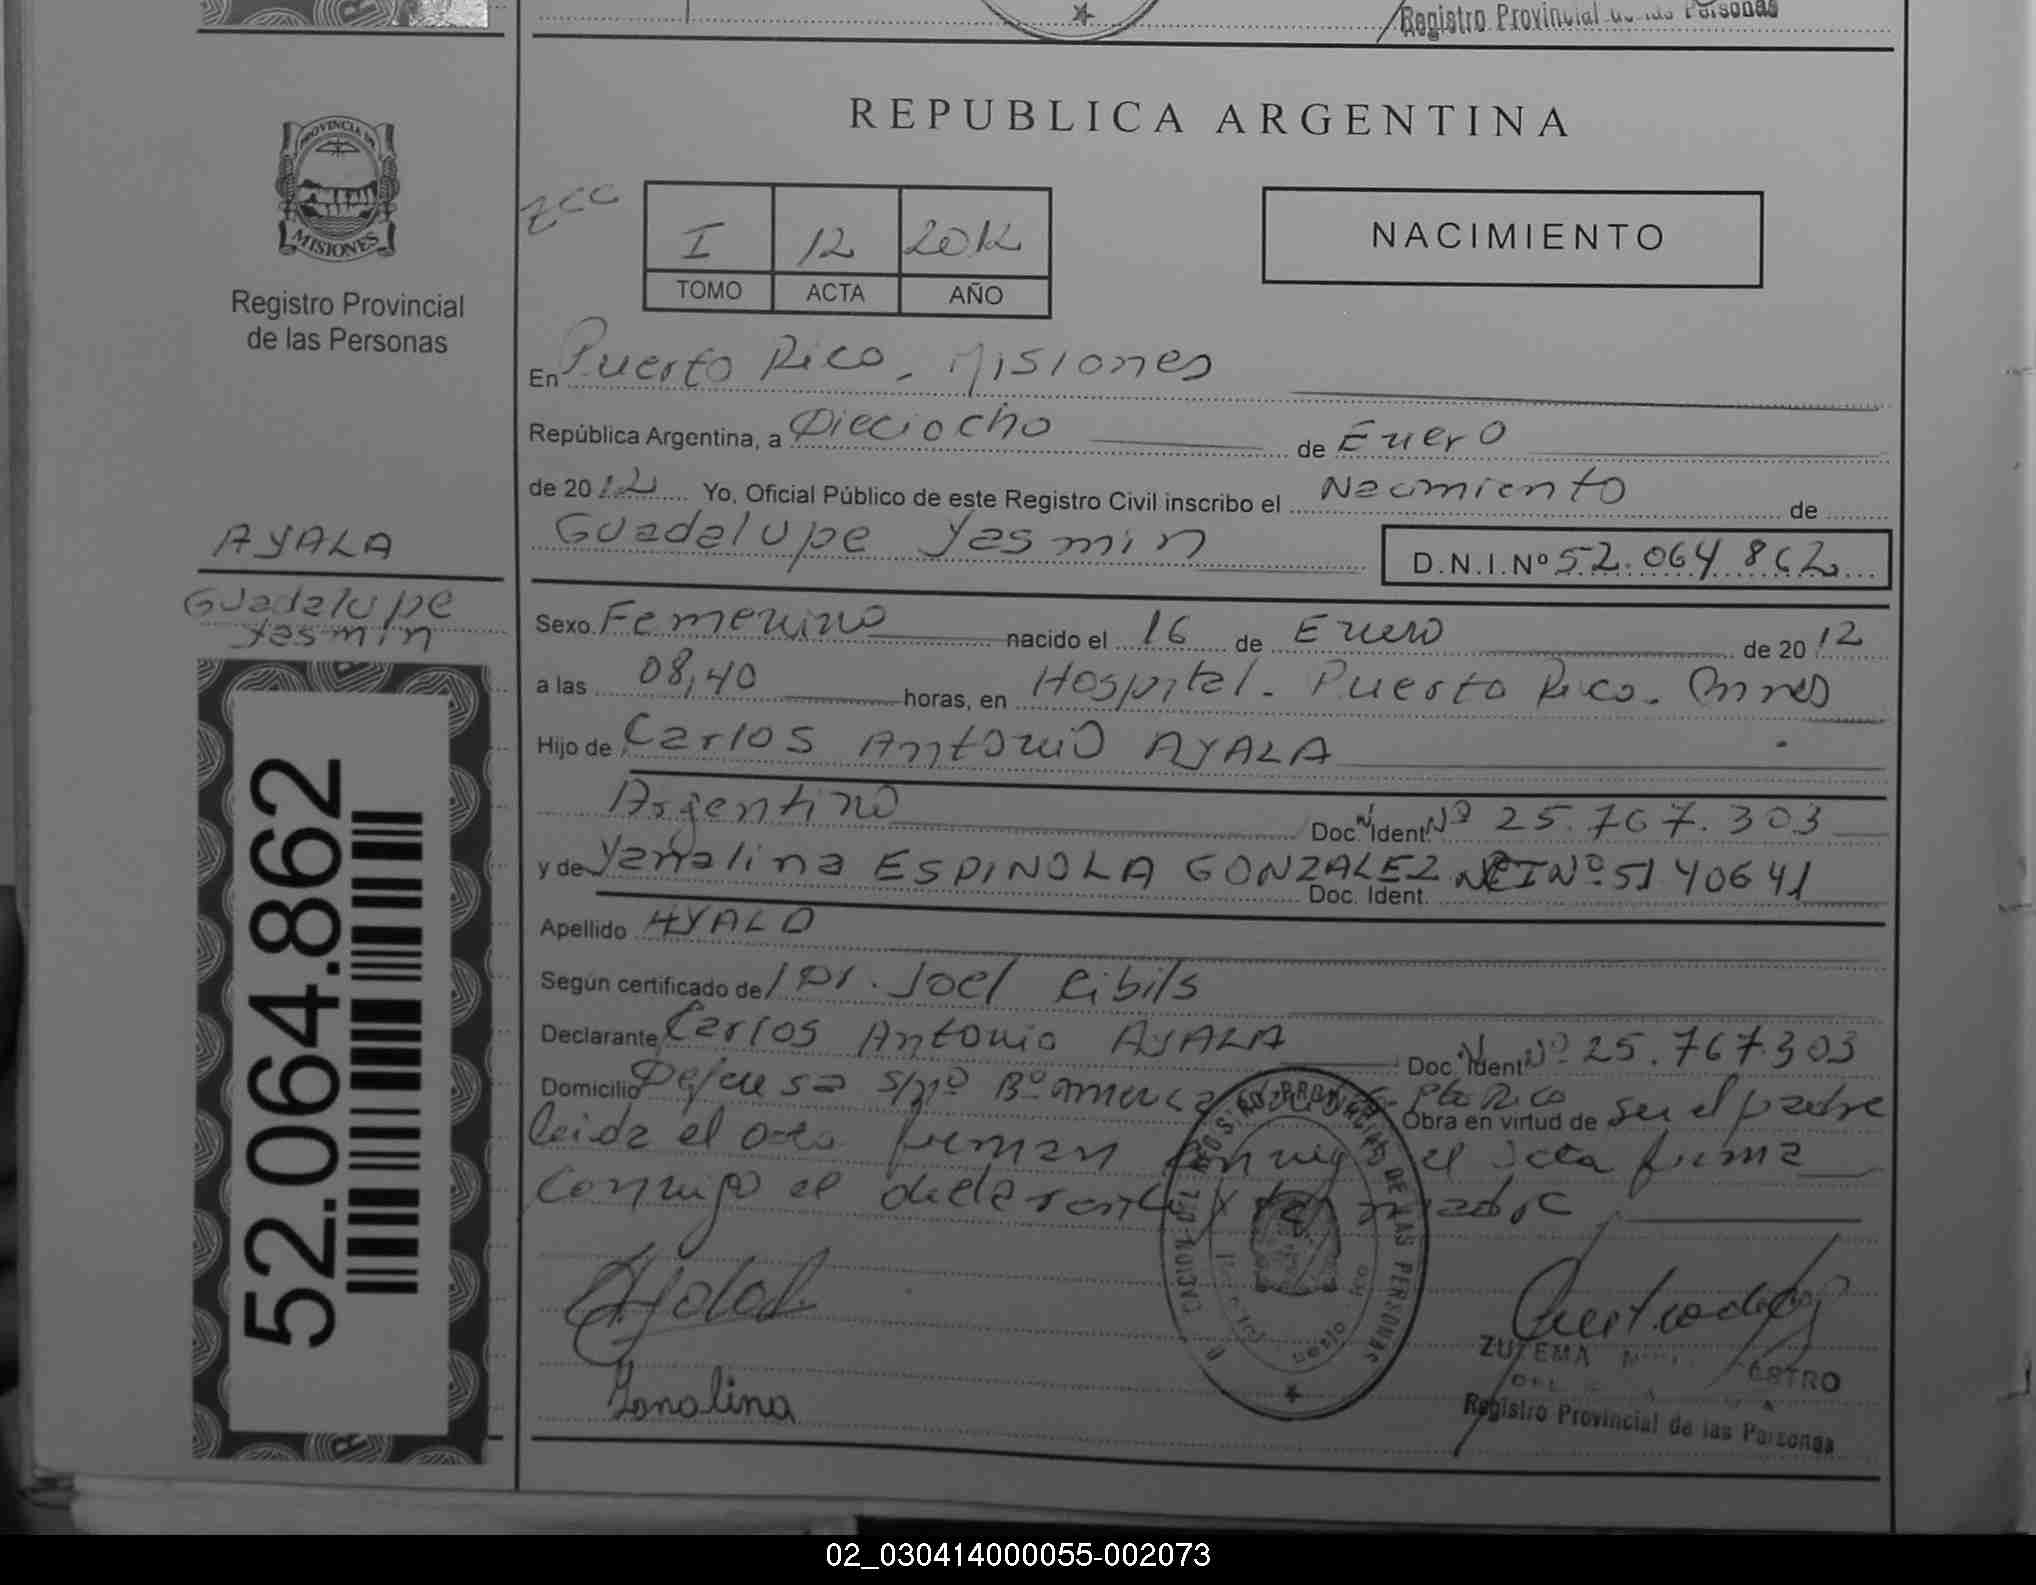 Registro Provincial de las Personas
REPUBLICA ARGENTINA
PROVINCIA DE
MISIONES
Registro Provincial
de las Personas
I 12 2012
TOMO ACTA AÑO
NACIMIENTO
En Puerto Rico - Misiones
República Argentina, a Dieciocho de Enero
de 2012 Yo, Oficial Público de este Registro Civil inscribo el Nacimiento de
Guadalupe Yasmin D.N.I.Nº 52.064.862
AYALA
Guadalupe
Yasmin
52.064.862
Sexo Femenino nacido el 16 de Enero de 2012
a las 08,40 horas, en Hospital - Puerto Rico - Mnes
Hijo de Carlos Antonio AYALA
Argentino Doc. Ident Nº 25.767.303
y de Yanalina ESPINOLA GONZALEZ CI Nº 5140641
Doc. Ident.
Apellido AYALA
Según certificado de Dr. Joel Cibils
Declarante Carlos Antonio AYALA Doc. Ident Nº 25.767.303
Domicilio Defensa s/nº Bº Pto Rico Obra en virtud de ser el padre
leida el acta firman el acta firma
conmigo el declarante y la madre
Ayala
Yanalina
REGISTRO PROVINCIAL DE LAS PERSONAS
ZULEMA CASTRO
Registro Provincial de las Personas
02_030414000055-002073